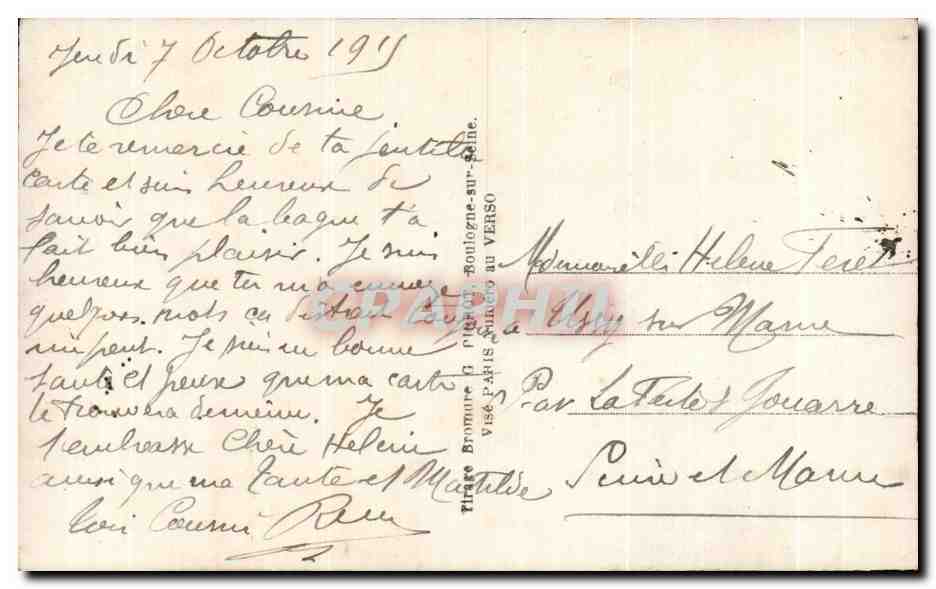 Jeudi 7 Octobre 1915
Chere Cousine
Je te remercie de ta jentille
carte et suis heureux de
savoir que la bague t'a
fait bien plaisir. Je suis
heureux que tu m'a envoye
quelques mots ca distrait
un peut. Je suis en bonne
sante et pense que ma carte
te trouvera de meme. Je
t'embrasse Chère Helene
ainsi que ma Tante et Matilde
ton Cousin
Tirage Bromure G. PIPROT, Boulogne-sur-Seine.
Visé PARIS Numéro au VERSO
Mademoiselle Helene Feret
a Ussy sur Marne
Par La Ferte s Jouarre
Seine et Marne
CPAPHIL